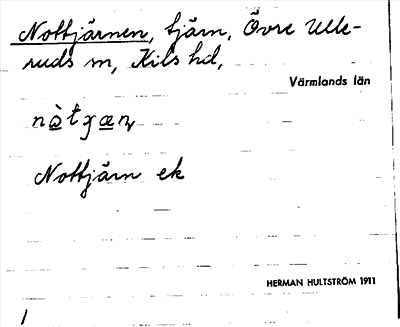 Nottjärnen, tjärn, Övre Ulle-
ruds sn, Kils hd,
Värmlands län
Nottjärn ek
HERMAN HULTSTRÖM 1911
1